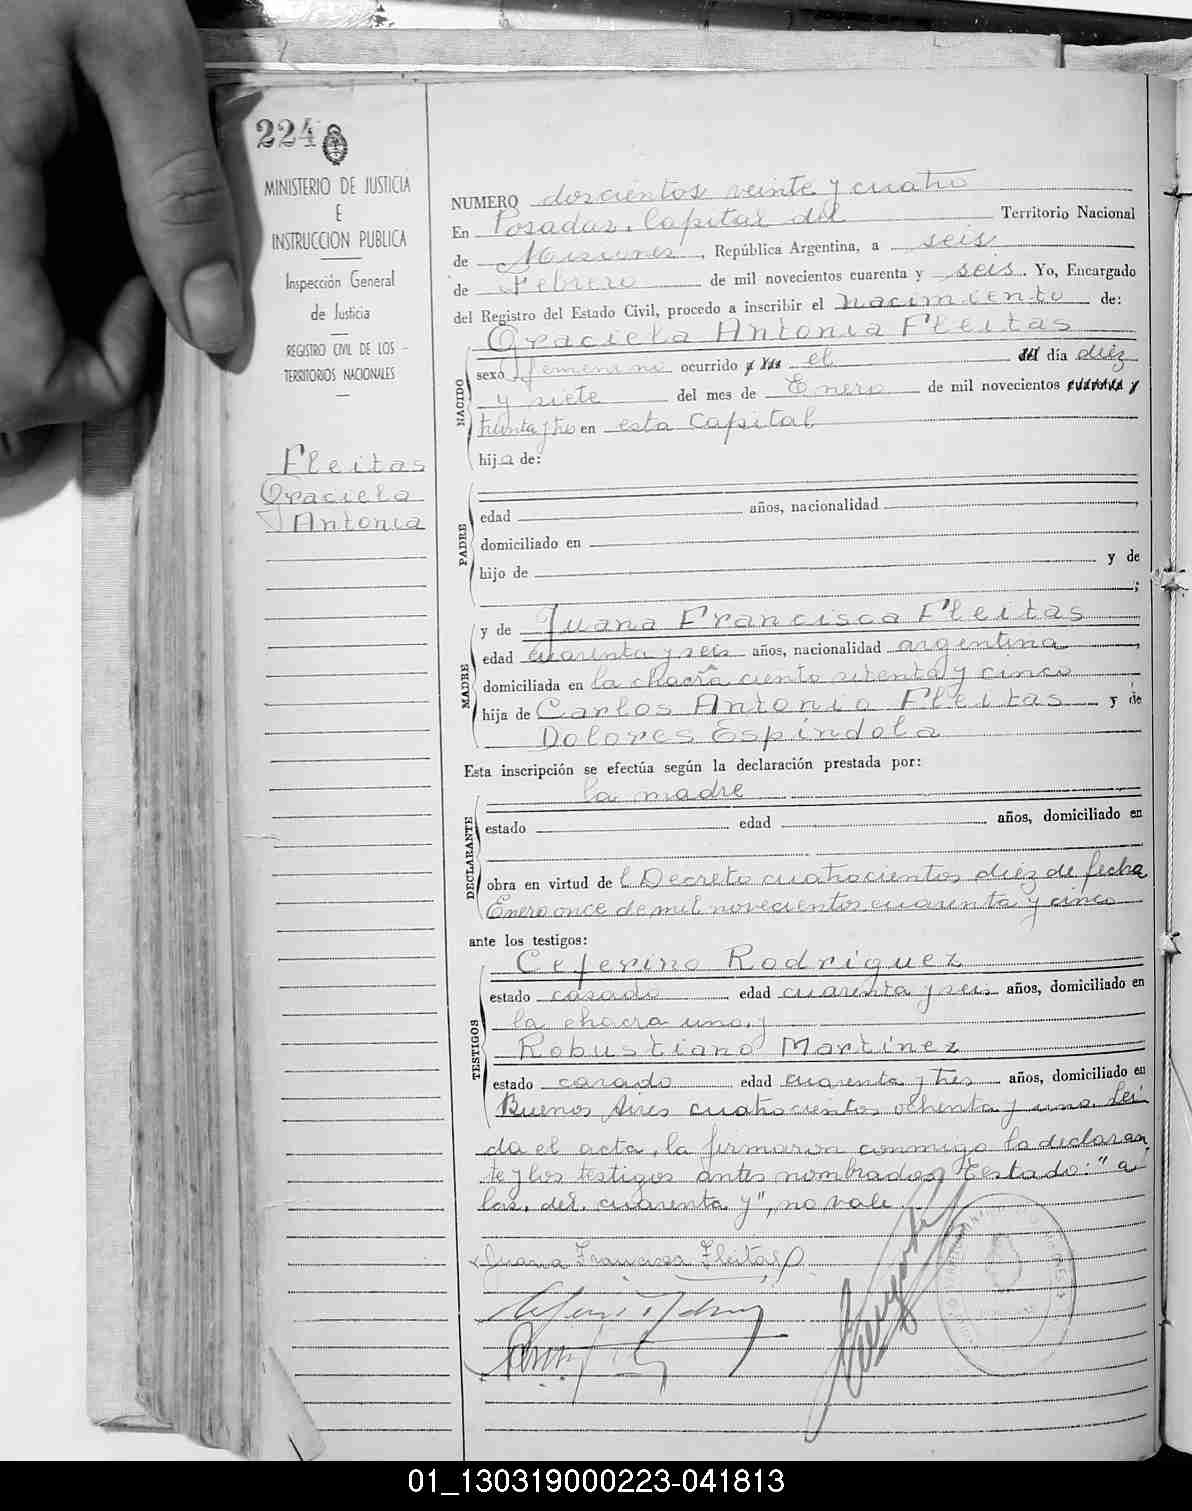 224
MINISTERIO DE JUSTICIA
E
INSTRUCCION PUBLICA
Inspección General
de Justicia
REGISTRO CIVIL DE LOS
TERRITORIOS NACIONALES
Fleitas
Graciela
Antonia
NUMERO doscientos veinte y cuatro
En Posadas, Capital del Territorio Nacional
de Misiones, República Argentina, a seis
de Febrero de mil novecientos cuarenta y seis. Yo, Encargado
del Registro del Estado Civil, procedo a inscribir el nacimiento de:
Graciela Antonia Fleitas
NACIDO
sexo femenino ocurrido a las el del día diéz
y siete del mes de Enero de mil novecientos cuarenta y
treinta y tres en esta Capital
hija de:
PADRE
edad años, nacionalidad
domiciliado en
hijo de y de
;
MADRE
y de Juana Francisca Fleitas
edad cuarenta y seis años, nacionalidad argentina
domiciliada en la chacra ciento setenta y cinco
hija de Carlos Antonio Fleitas y de
Dolores Espíndola
Esta inscripción se efectúa según la declaración prestada por:
la madre
DECLARANTE
estado edad años, domiciliado en
obra en virtud del Decreto cuatrocientos diéz de fecha
Enero once de mil novecientos cuarenta y cinco
ante los testigos:
TESTIGOS
Ceferino Rodriguez
estado casado edad cuarenta y seis años, domiciliado en
la chacra uno, y
Robustiano Martínez
estado casado edad cuarenta y tres años, domiciliado en
Buenos Aires cuatrocientos ochenta y uno. Leí
da el acta, la firmaron conmigo la declaran
te y los testigos antes nombrados Testado: "a
las, del, cuarenta y", no vale
Juana Francisca Fleitas
01_130319000223-041813